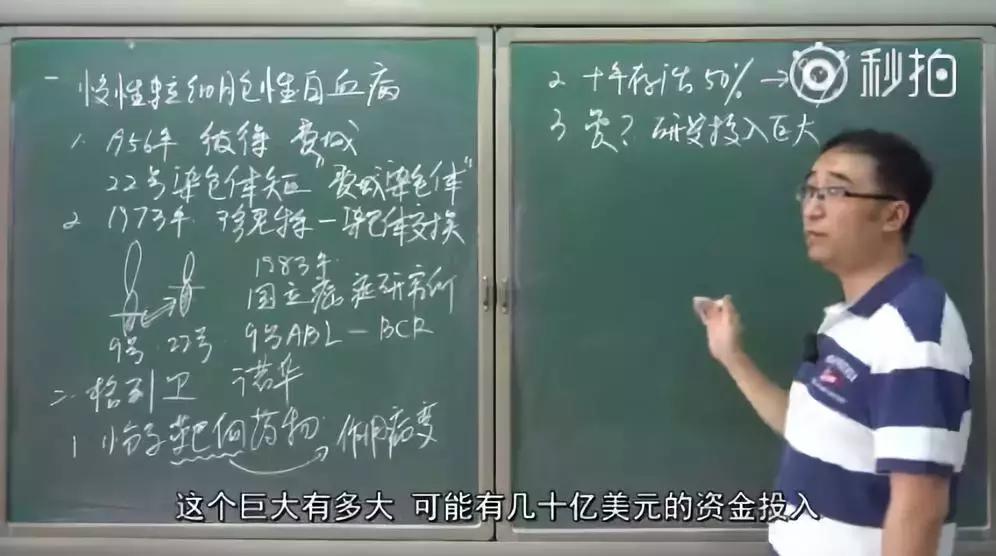 一 慢性粒细胞性白血病
1. 1956年 彼得 费城
22号染色体短 "费城染色体"
2 1973年 珍妮特-染色体交换
1983年
国立癌症研究所
9号 22号
9号ABL-BCR
二 格列卫 诺华
1 小分子靶向药物 作用病变
2 十年存活 50% →
3 贵? 研发投入巨大
秒拍
这个巨大有多大 可能有几十亿美元的资金投入